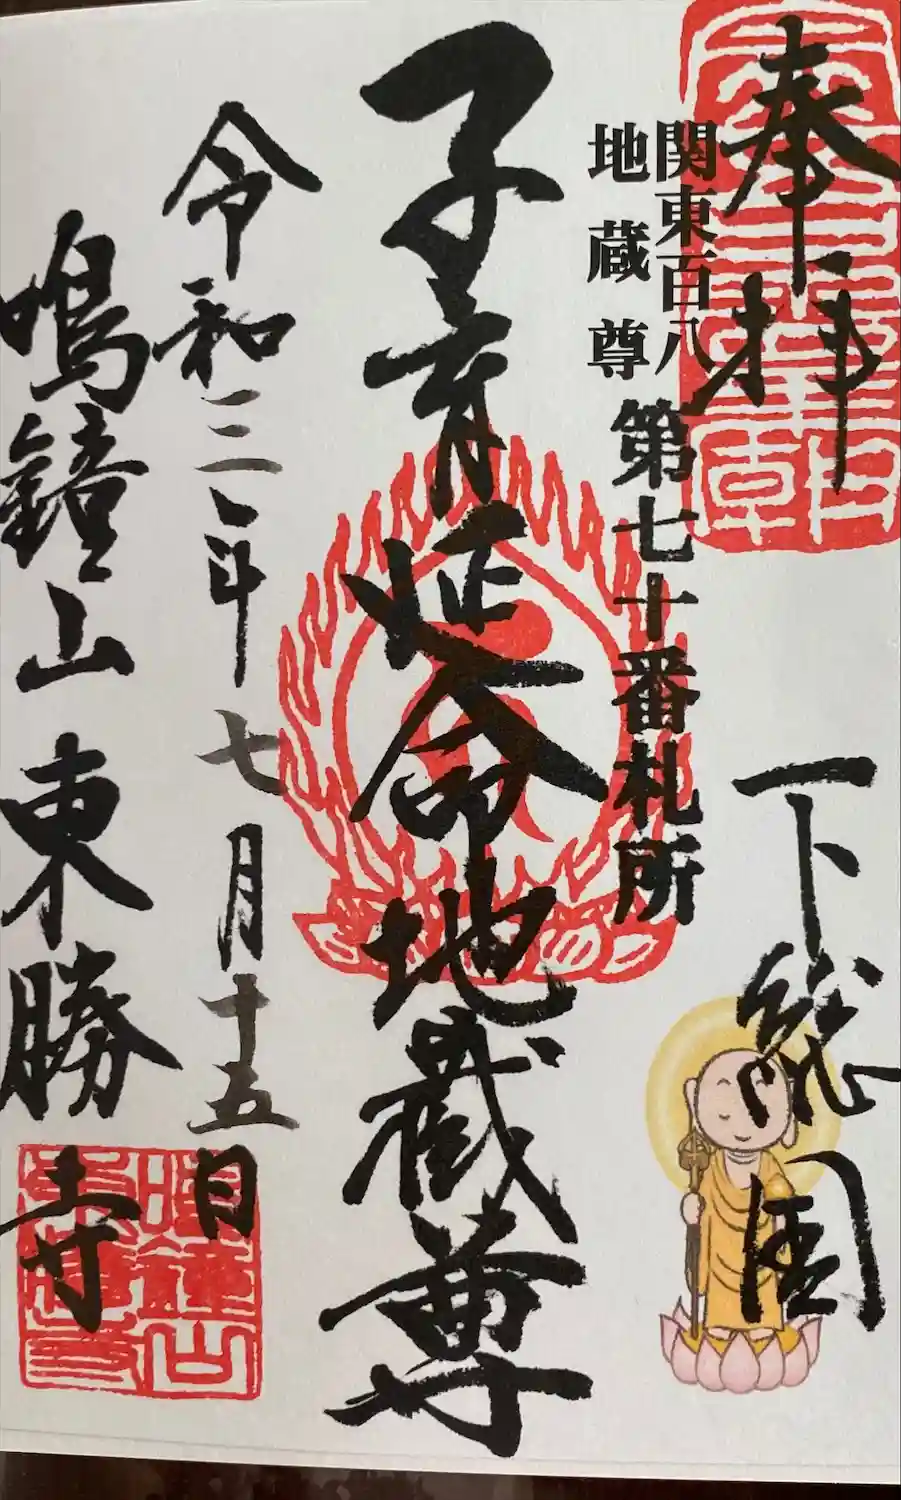 奉拝
下総国
関東百八
地蔵尊
第七十番札所
子育延命地蔵尊
令和三年七月十五日
鳴鐘山 東勝寺
鳴鐘山
東勝寺